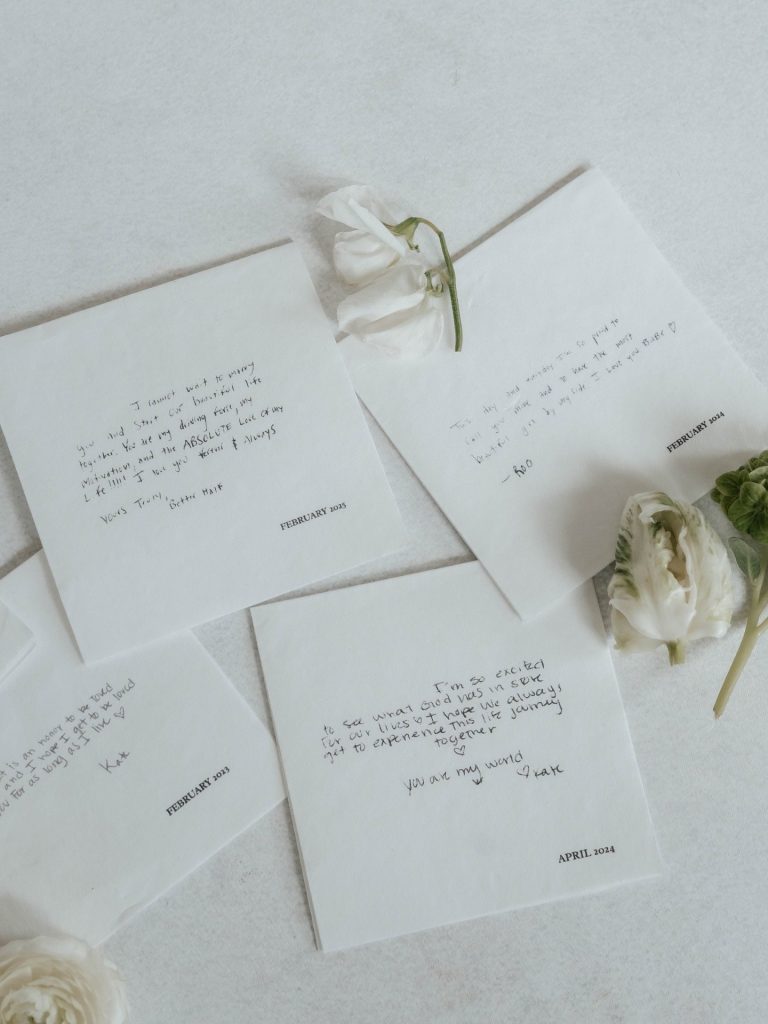 I cannot wait to marry
you and start our beautiful life
together. You are my driving force, my
motivation, and the ABSOLUTE Love of my
Life!!!!! I love you forever & Always.
Yours Truly,
Better Half
FEBRUARY 2025
This day and everyday I'm so proud to
call you mine and to have the most
beautiful girl by my life I love you BuBu ♡
- ROO
FEBRUARY 2024
is an honor to be loved
and I hope I get to be loved
you for as long as I live ♡
Kate
FEBRUARY 2023
I'm so excited
to see what God has in store
for our lives & I hope we always
get to experience this life journey
together
♡
you are my world
♡ Kate
APRIL 2024